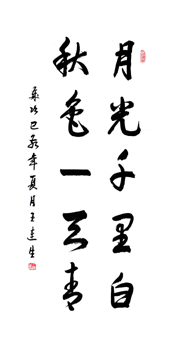 月光千里白
秋色一天青
歲次己亥年夏月王建生